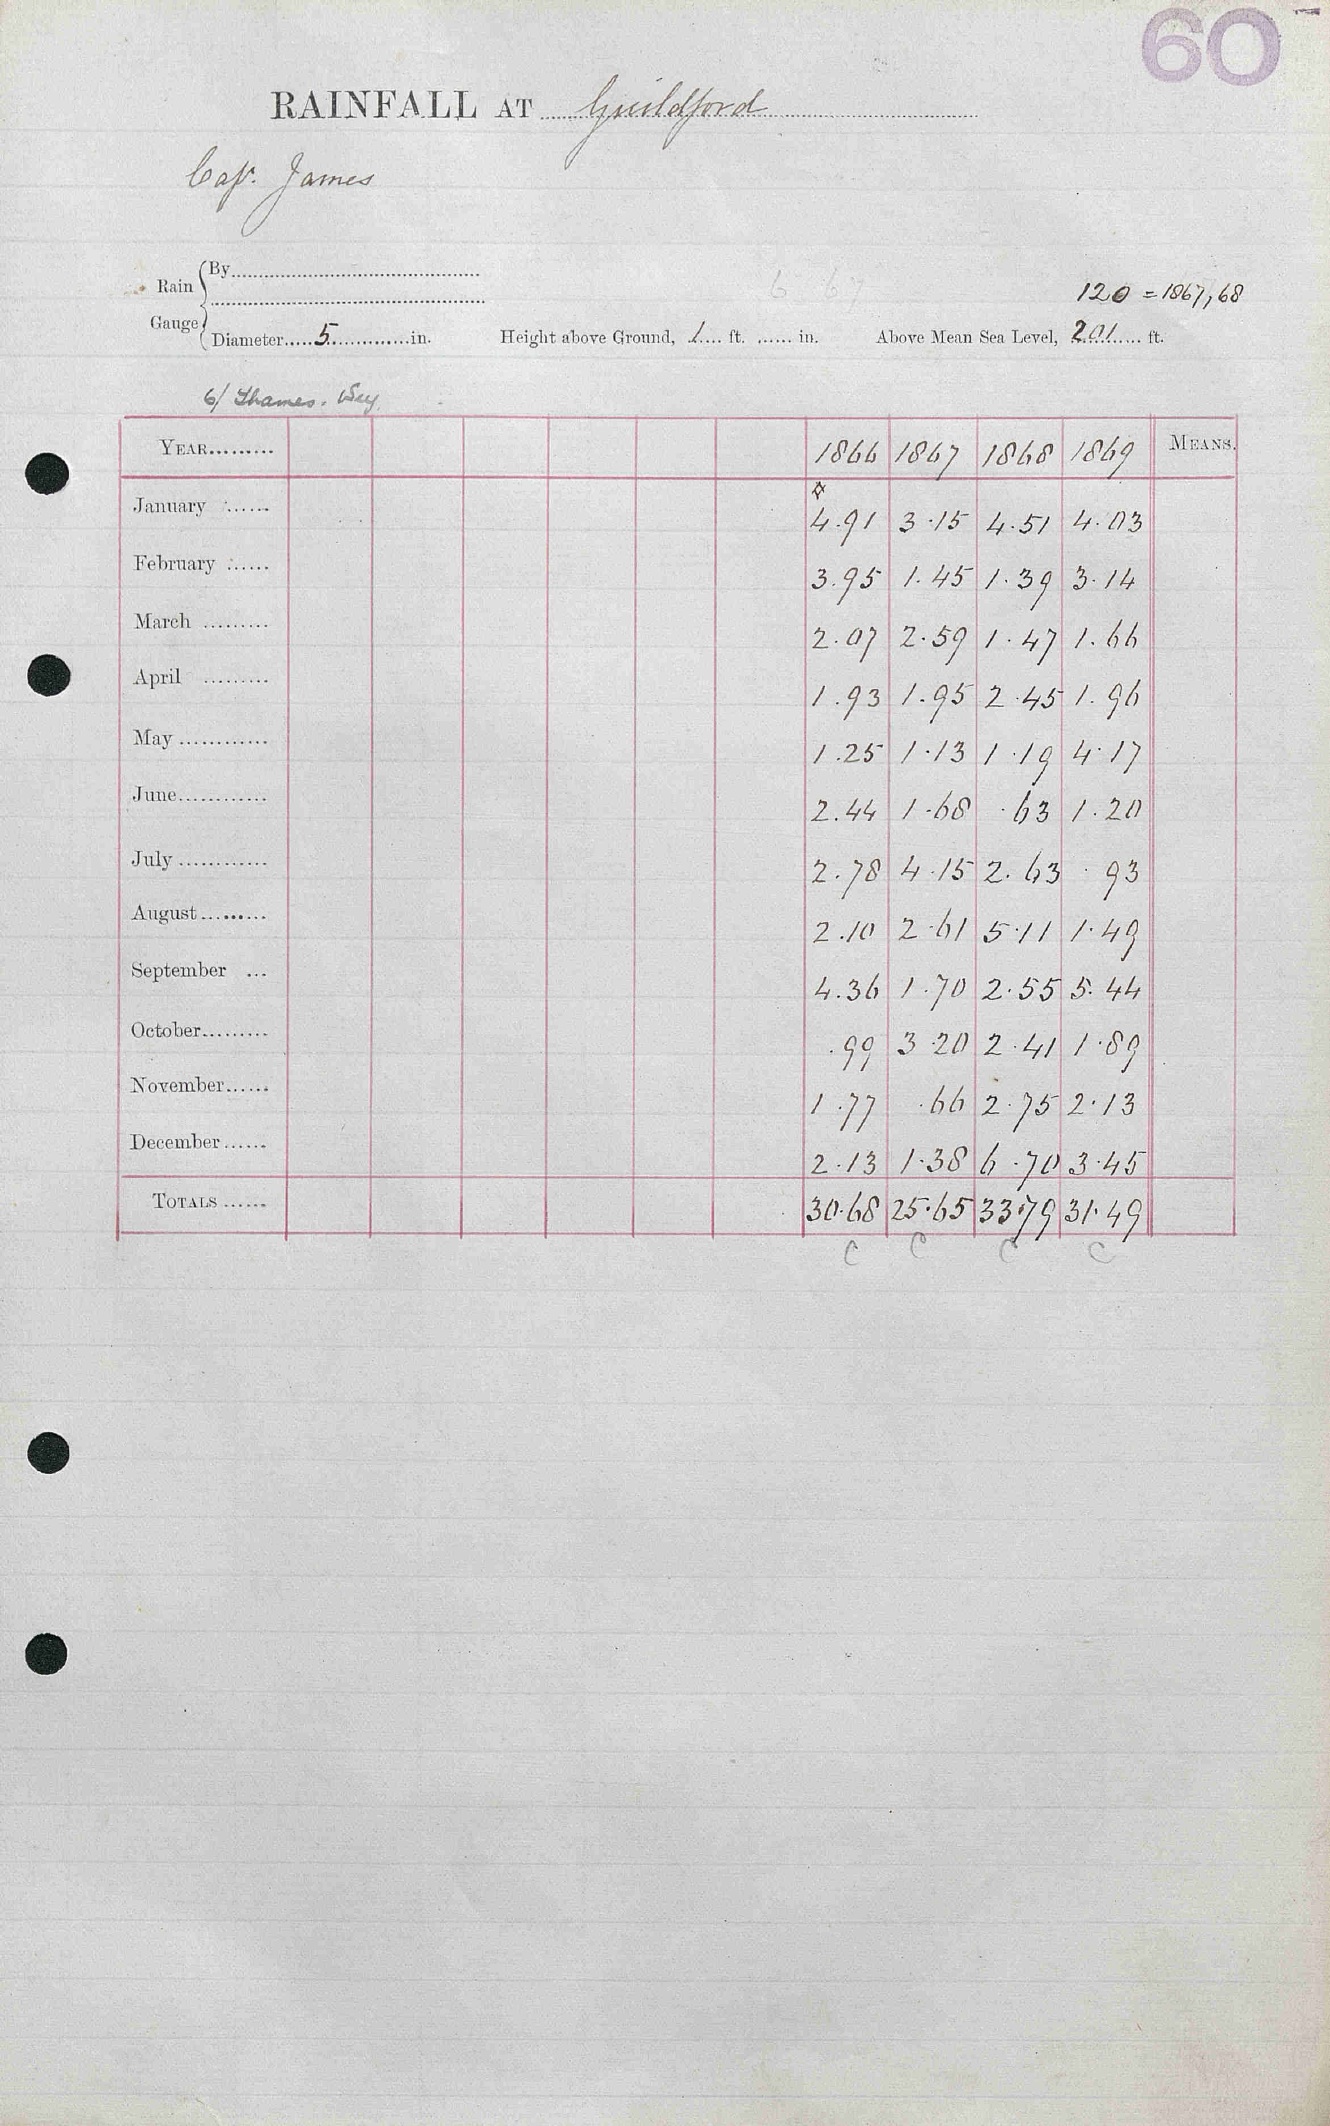 60
RAINFALL AT Guildford
Cap. James
Rain Gauge { By
120 = 1867, 68
Diameter 5 in. Height above Ground, 1 ft. in. Above Mean Sea Level, 201 ft.
6/ Thames. Wey
YEAR 1866 1867 1868 1869 MEANS.
January 4.91 3.15 4.51 4.03
February 3.95 1.45 1.39 3.14
March 2.07 2.59 1.47 1.66
April 1.93 1.95 2.45 1.96
May 1.25 1.13 1.19 4.17
June 2.44 1.68 .63 1.20
July 2.78 4.15 2.63 .93
August 2.10 2.61 5.11 1.49
September 4.36 1.70 2.55 5.44
October .99 3.20 2.41 1.89
November 1.77 .66 2.75 2.13
December 2.13 1.38 6.70 3.45
TOTALS 30.68 25.65 33.79 31.49
C C C C